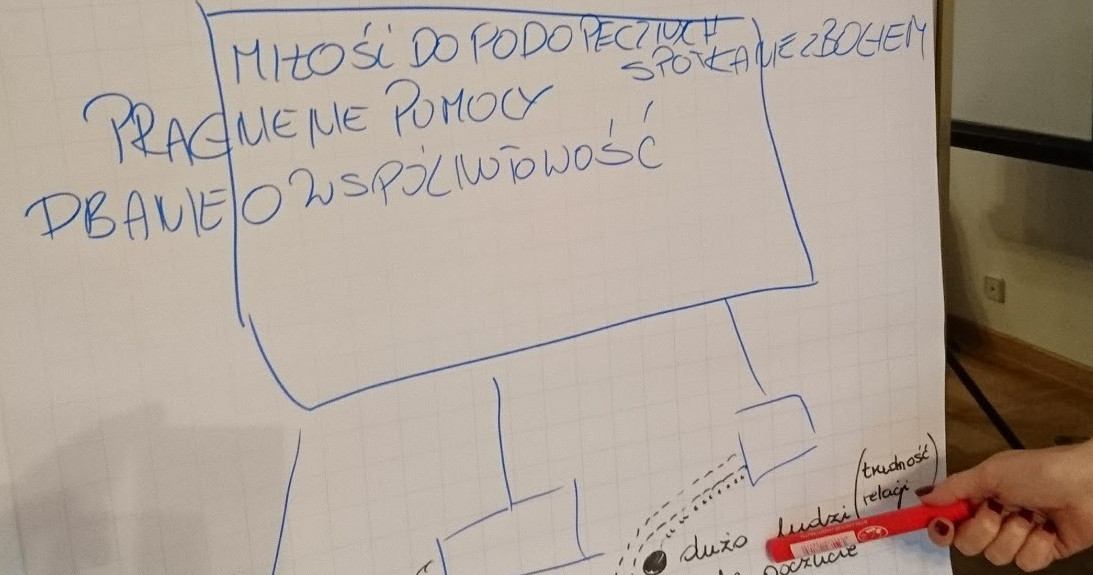 MIŁOŚĆ DO PODOPIECZNYCH
SPOTKANIE Z BOGIEM
PRAGNIENIE POMOCY
DBANIE O WSPÓLNOTOWOŚĆ
(trudność
relacji
dużo ludzi
poczucie